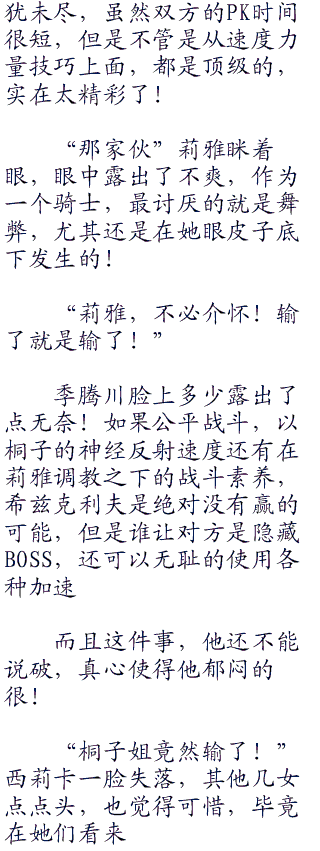 犹未尽，虽然双方的PK时间
很短，但是不管是从速度力
量技巧上面，都是顶级的，
实在太精彩了！
“那家伙”莉雅眯着
眼，眼中露出了不爽，作为
一个骑士，最讨厌的就是舞
弊，尤其还是在她眼皮子底
下发生的！
“莉雅，不必介怀！输
了就是输了！”
季腾川脸上多少露出了
点无奈！如果公平战斗，以
桐子的神经反射速度还有在
莉雅调教之下的战斗素养，
希兹克利夫是绝对没有赢的
可能，但是谁让对方是隐藏
BOSS，还可以无耻的使用各
种加速
而且这件事，他还不能
说破，真心使得他郁闷的
很！
“桐子姐竟然输了！”
西莉卡一脸失落，其他几女
点点头，也觉得可惜，毕竟
在她们看来